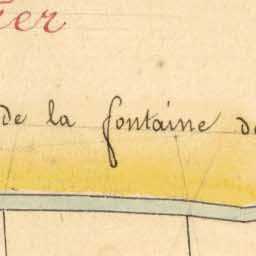 er
de la fontaine de